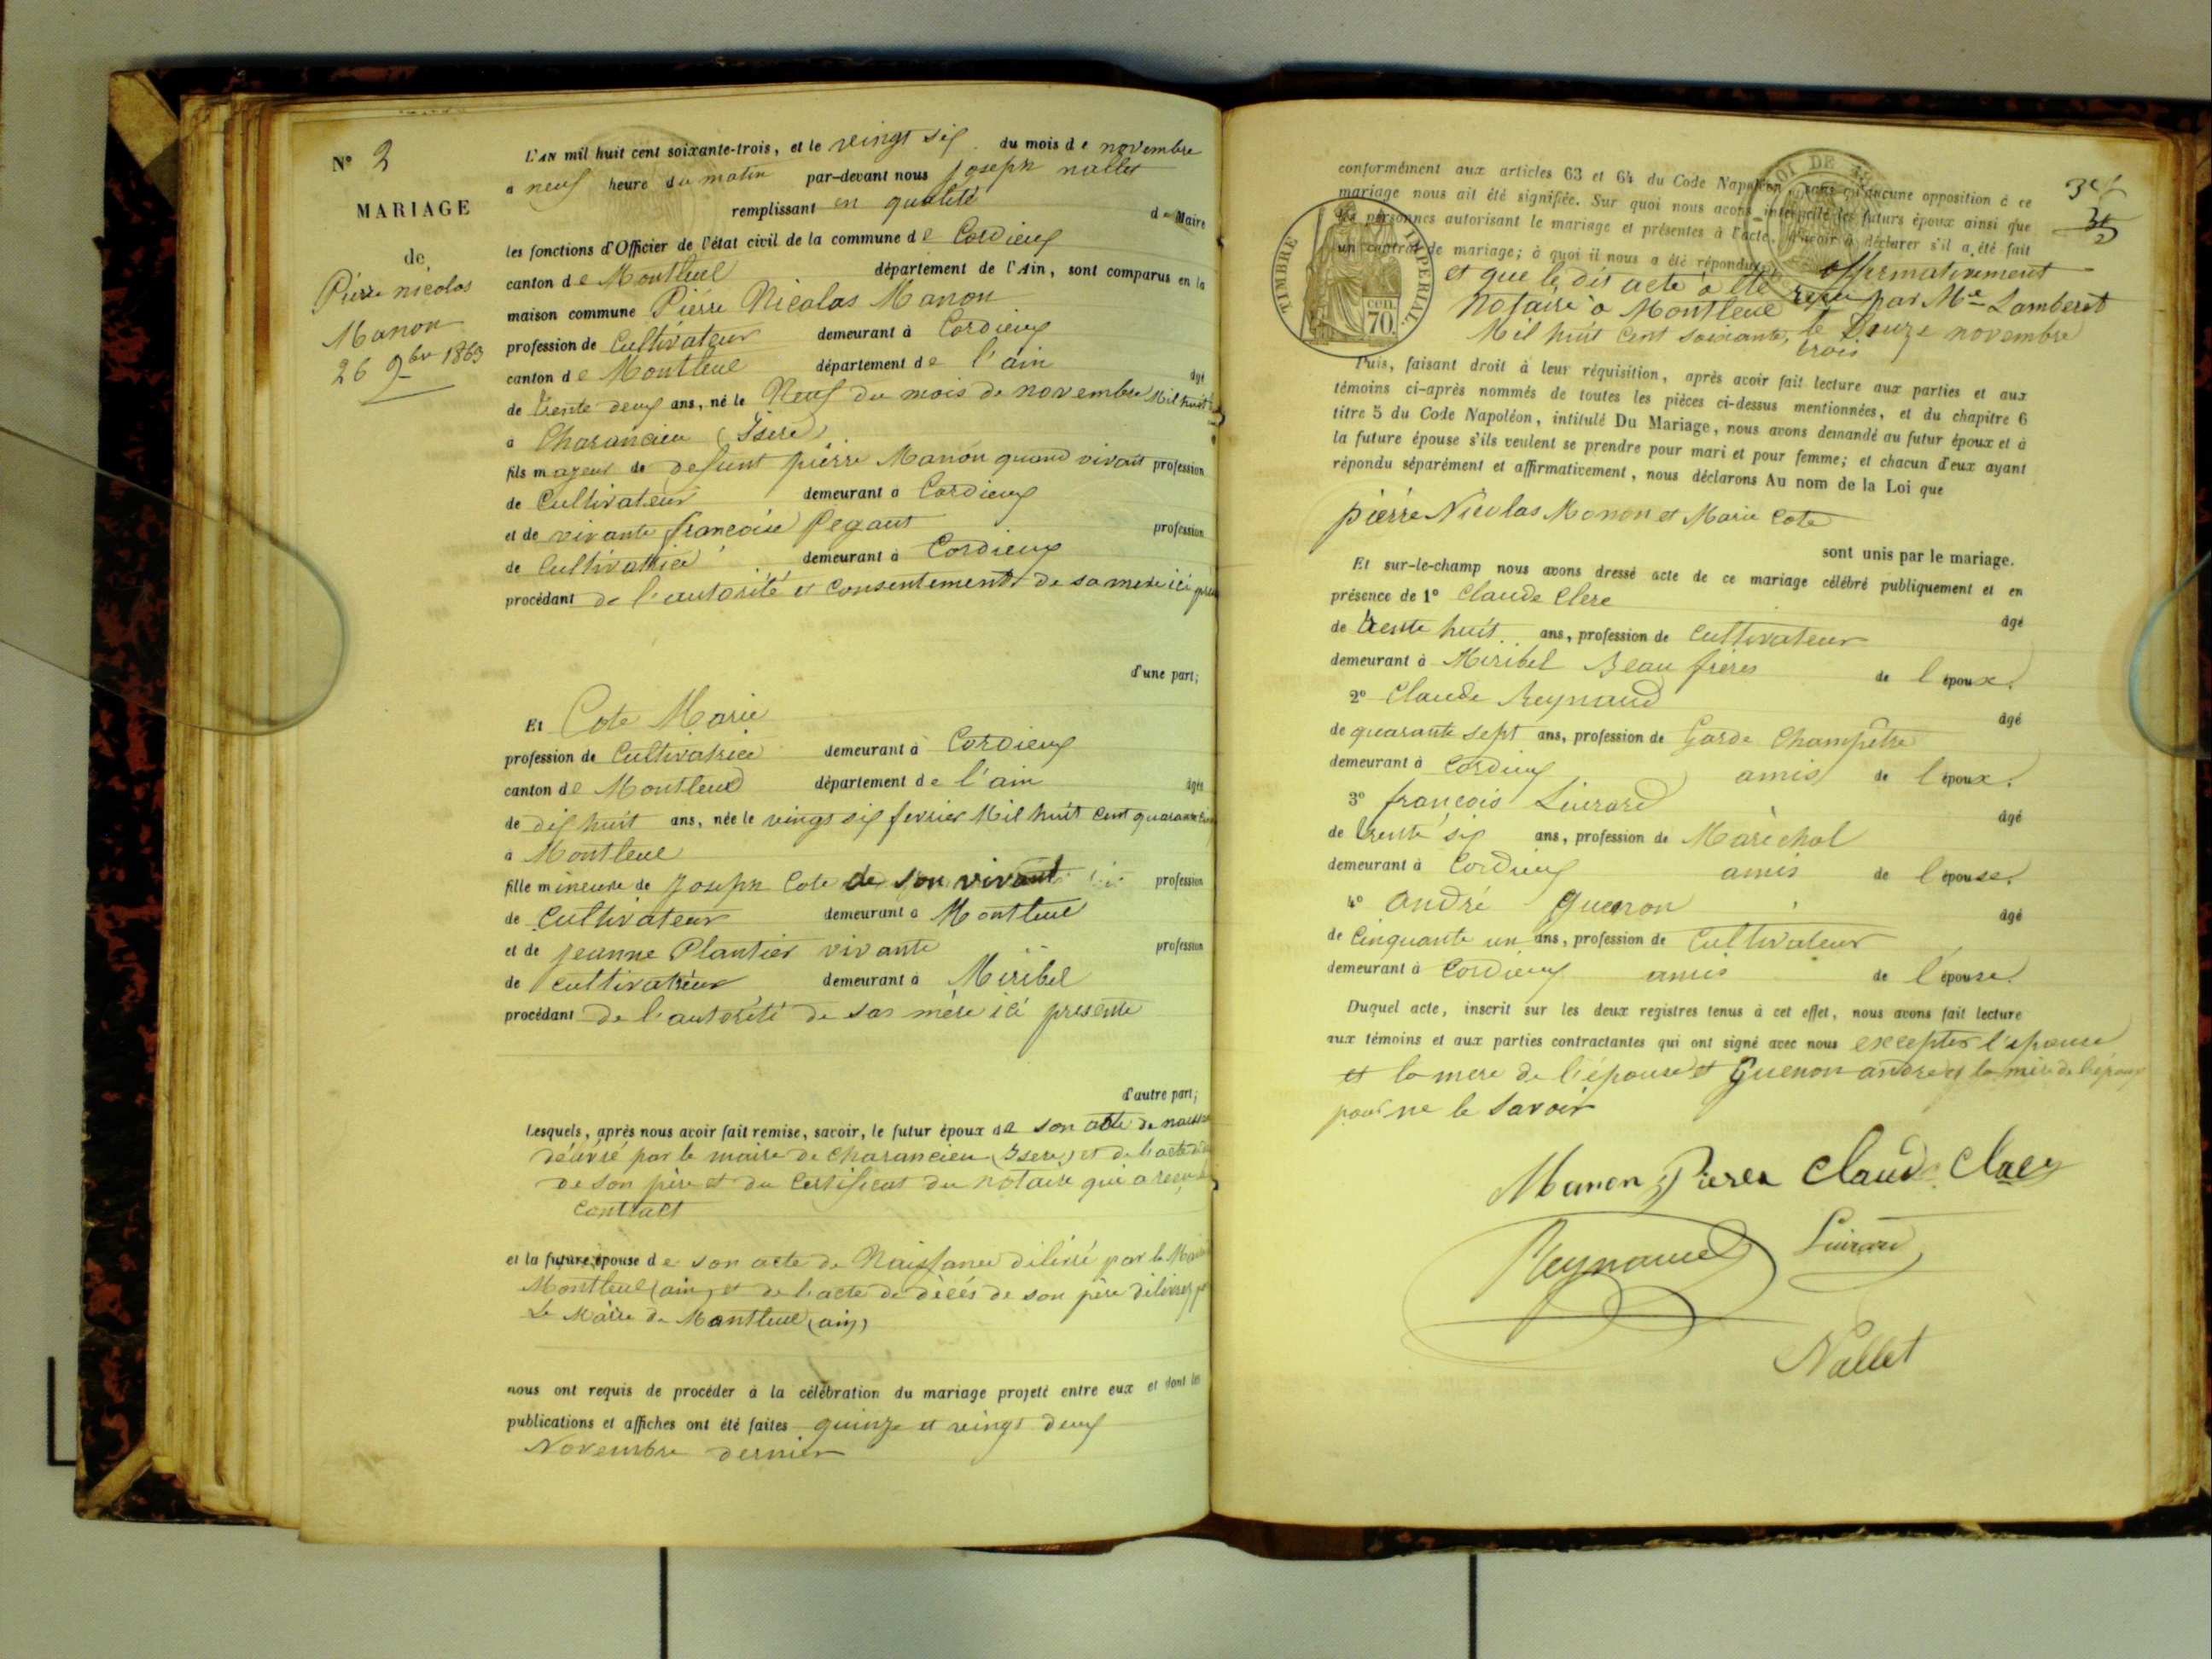 N° 2
MARIAGE
de
Pierre nicolas
Manon
26 9bre 1863
L'AN mil huit cent soixante-trois, et le vingt six du mois de novembre
a neuf heure du matin par-devant nous Joseph nallet
remplissant en qualité de Maire
les fonctions d'Officier de l'état civil de la commune de Cordieux
canton de Montluel département de l'Ain, sont comparus en la
maison commune Pierre Nicolas Manon
profession de Cultivateur demeurant à Cordieux
canton de Montluel département de l'ain âgé
de trente deux ans, né le Neuf du mois de novembre Mil huit
à Charancieu (Isere)
fils majeur de defunt pierre Manon quand vivait profession
de Cultivateur demeurant à Cordieux
et de vivante francoise Pegaut profession
de Cultivatrice demeurant à Cordieux
procédant de l'autorité et consentement de sa mere ici
d'une part;
Et Cote Marie
profession de Cultivatrice demeurant à Cordieux
canton de Montluel département de l'ain âgée
de dix huit ans, née le vingt six fevrier Mil huit Cent quarante
à Montluel
fille mineure de Joseph Cote de son vivant profession
de Cultivateur demeurant à Montluel
et de jeanne Plantier vivante profession
de cultivatrice demeurant à Miribel
procédant de l'autorité de sa mère ici presente
d'autre part;
Lesquels, après nous avoir fait remise, savoir, le futur époux de son acte de
délivré par le maire de Charancieu (Isere) et de l'acte de
de son père et du Certificat du notaire qui a reçu
Contract
et la future épouse de son acte de Naissance délivré par le
Montluel (ain) et de l'acte de décés de son père délivrez
Le Maire de Montluel (ain)
nous ont requis de procéder à la célébration du mariage projeté entre eux et dont les
publications et affiches ont été faites quinze et vingt deux
Novembre dernier
conformément aux articles 63 et 64 du Code Napoléon, sans qu'aucune opposition à ce
mariage nous ait été signifiée. Sur quoi nous avons interpellé les futurs époux ainsi que
les personnes autorisant le mariage et présentes à l'acte, d'avoir à déclarer s'il a été fait
un contrat de mariage; à quoi il nous a été répondu affirmativement
et que le dit acte à été reçu par Me Lamberet
Notaire à Montluel le Douze novembre
Mil huit Cent soixante, trois
TIMBRE IMPERIAL
cen
70
Puis, faisant droit à leur réquisition, après avoir fait lecture aux parties et aux
témoins ci-après nommés de toutes les pièces ci-dessus mentionnées, et du chapitre 6
titre 5 du Code Napoléon, intitulé Du Mariage, nous avons demandé au futur époux et à
la future épouse s'ils veulent se prendre pour mari et pour femme; et chacun d'eux ayant
répondu séparément et affirmativement, nous déclarons Au nom de la Loi que
pierre Nicolas Manon et Marie Cote
sont unis par le mariage.
Et sur-le-champ nous avons dressé acte de ce mariage célébré publiquement et en
présence de 1° Claude Clere âgé
de trente huit ans, profession de Cultivateur
demeurant à Miribel Beau freres de l'époux.
2° Claude Reynaud âgé
de quarante sept ans, profession de Garde Champêtre
demeurant à Cordieux amis de l'époux.
3° françois Livrard âgé
de trente six ans, profession de Maréchal
demeurant à Cordieux amis de l'épouse.
4° André Guenon âgé
de Cinquante un ans, profession de Cultivateur
demeurant à Cordieux amis de l'épouse.
Duquel acte, inscrit sur les deux registres tenus à cet effet, nous avons fait lecture
aux témoins et aux parties contractantes qui ont signé avec nous excepter l'epouse
et la mere de l'épouse et Guenon andré et la mère de l'époux
pour ne le savoir
Manon Pierre Claude
Reynaud Livrard
Nallet